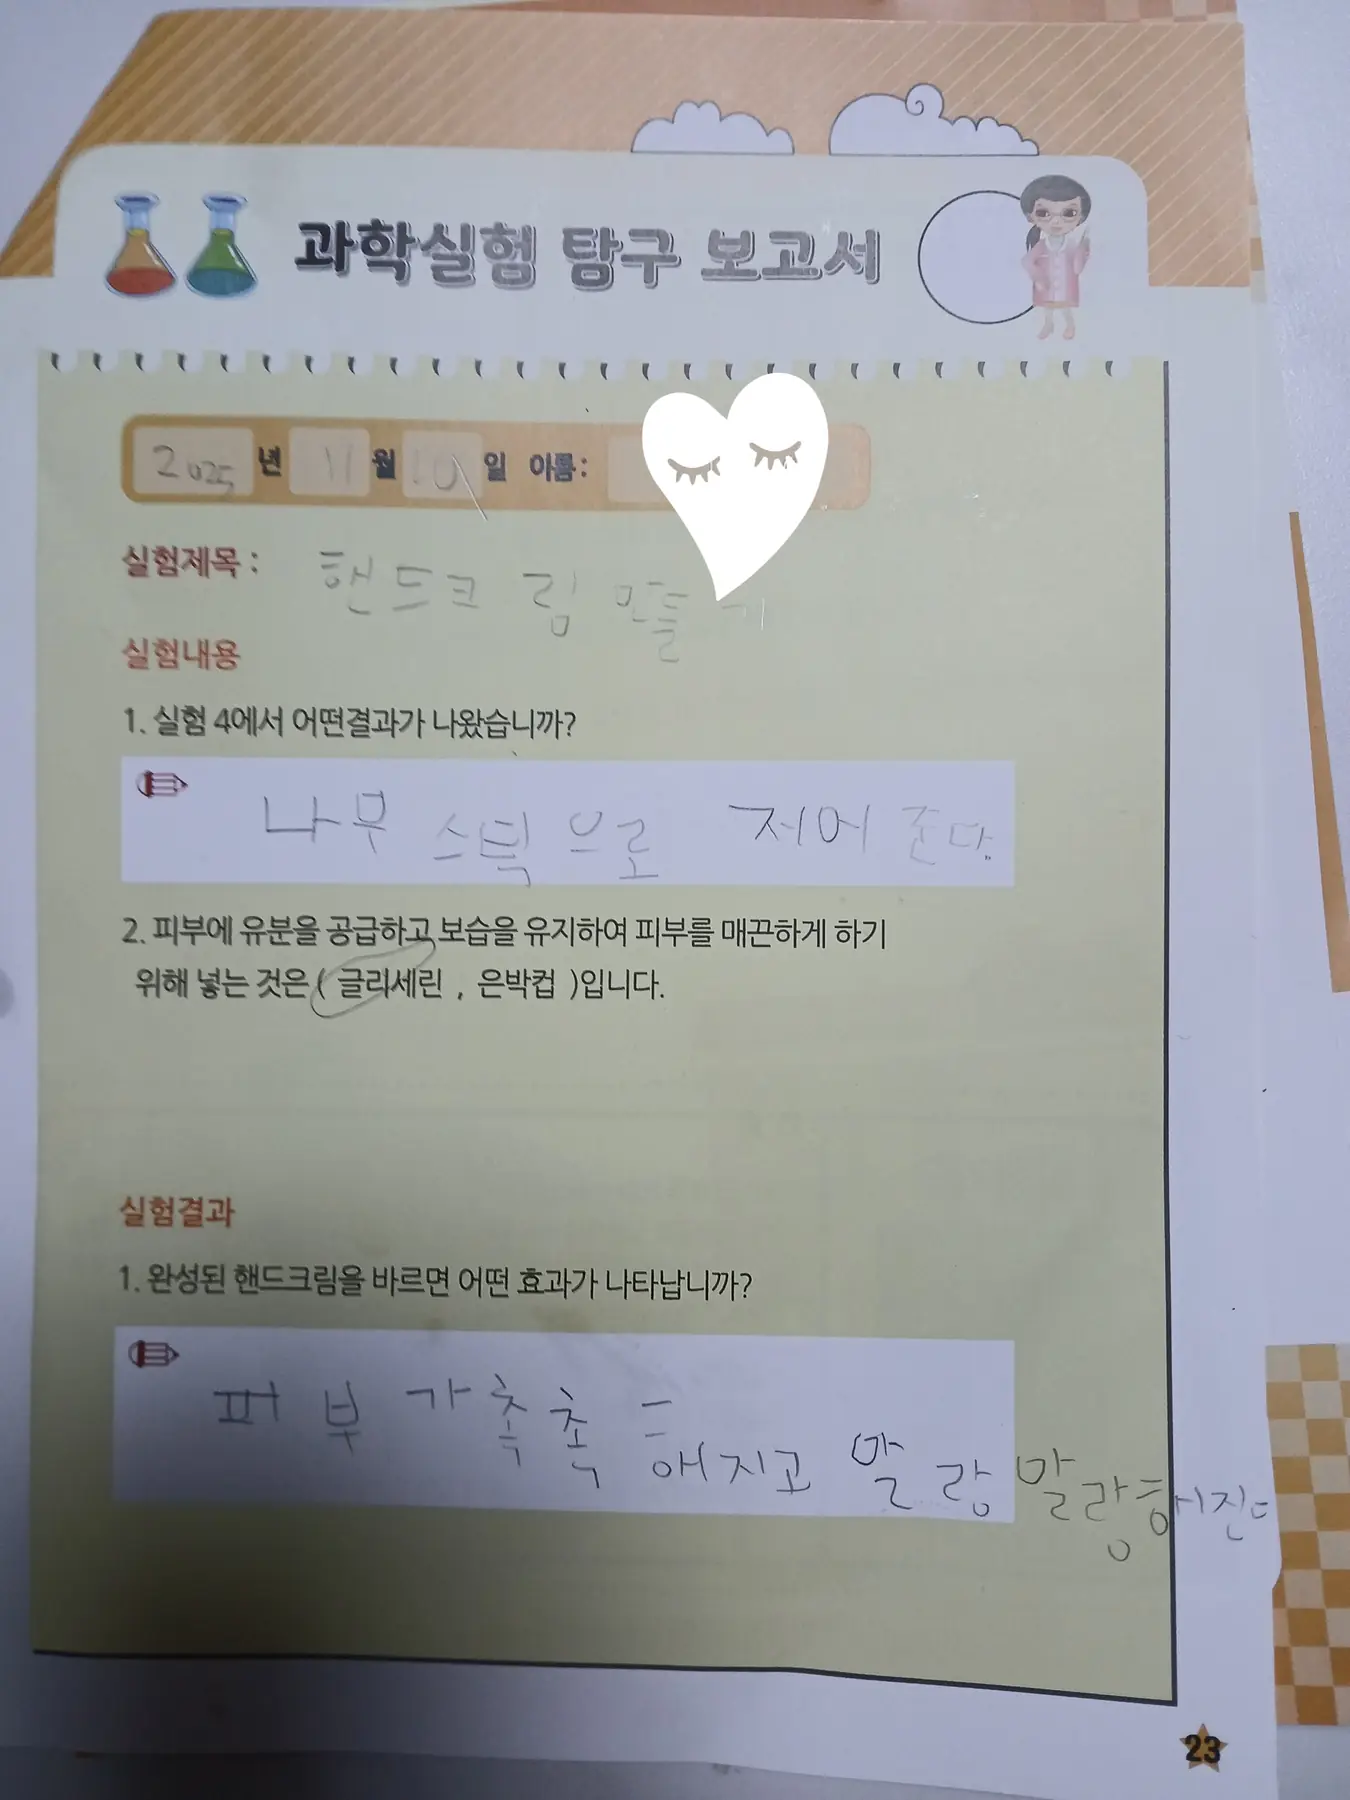 과학실험 탐구 보고서
2025년 11월 10일 이름:
실험제목 : 핸드크림 만들기
실험내용
1. 실험 4에서 어떤결과가 나왔습니까?
나무 스틱으로 저어준다.
2. 피부에 유분을 공급하고 보습을 유지하여 피부를 매끈하게 하기
위해 넣는 것은 ( 글리세린 , 은박컵 )입니다.
실험결과
1. 완성된 핸드크림을 바르면 어떤 효과가 나타납니까?
피부가 촉촉해지고 말랑말랑해진다
23